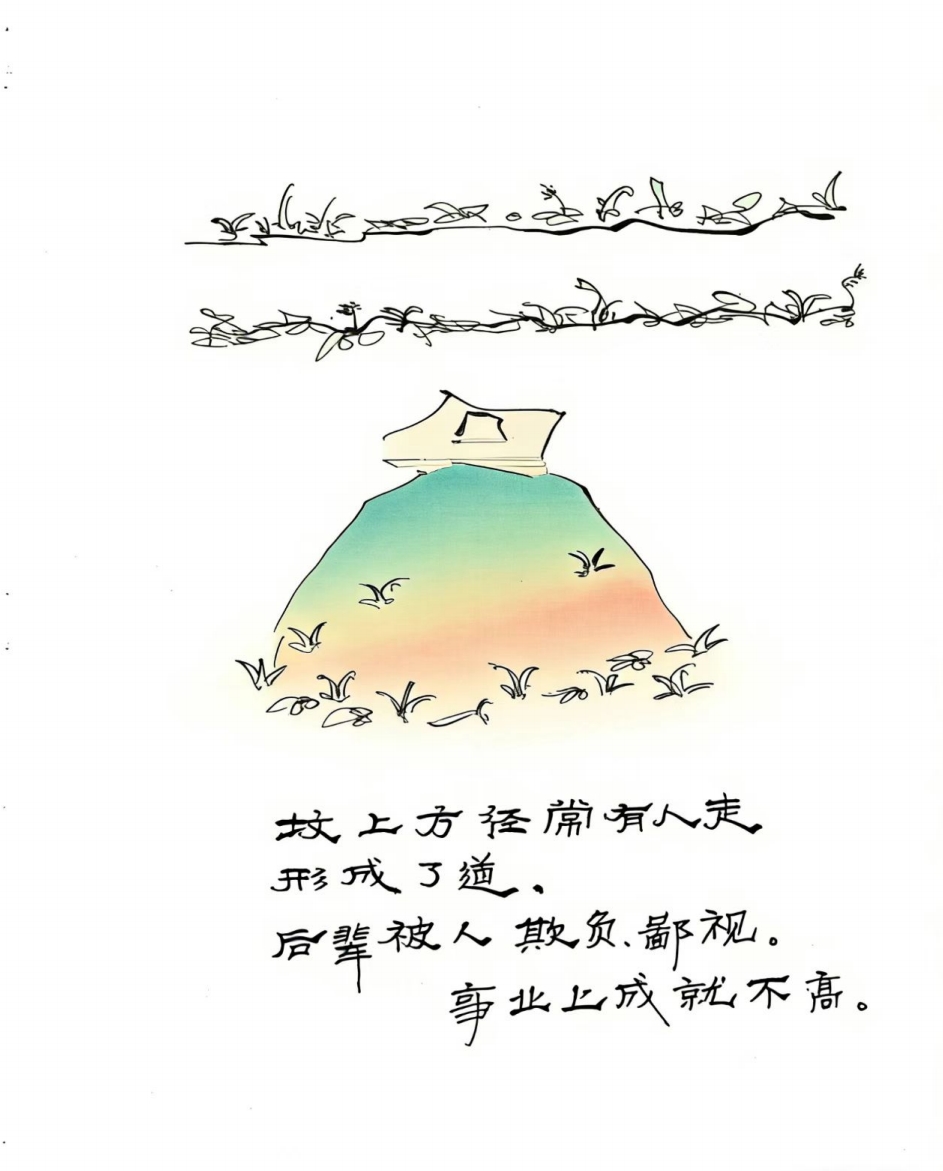 坟上方径常有人走
形成了道.
后辈被人欺负、鄙视。
事业上成就不高。